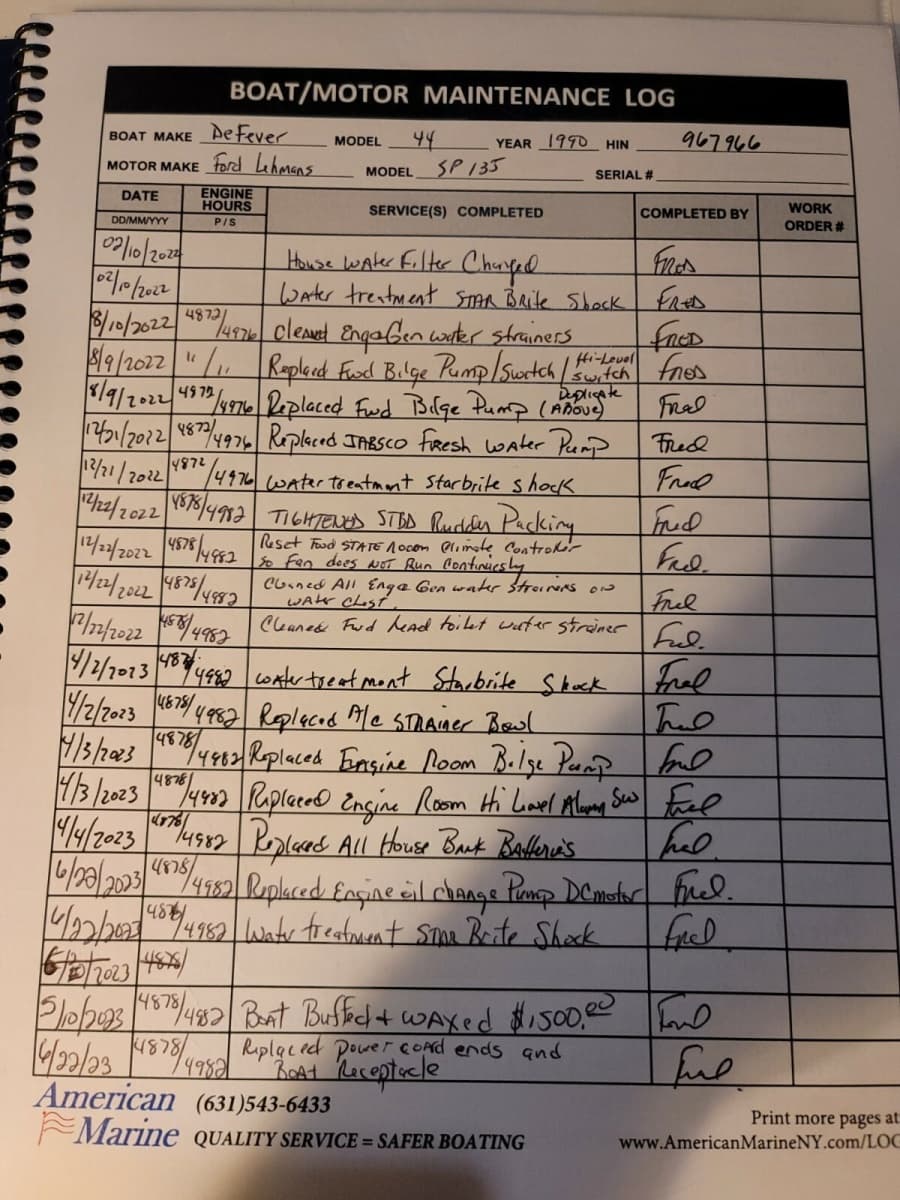 BOAT/MOTOR MAINTENANCE LOG
BOAT MAKE DeFever MODEL 44 YEAR 1990 HIN 967966
MOTOR MAKE Ford Lehmans MODEL SP 135 SERIAL #
DATE ENGINE HOURS SERVICE(S) COMPLETED COMPLETED BY WORK ORDER #
DD/MM/YYY P/S
02/10/2022 House Water Filter Changed FRED
02/10/2022 Water treatment STAR BRite Shock FRED
8/10/2022 4872/4976 Cleaned Eng & Gen water strainers FRED
8/9/2022 "/" Replaced Fwd Bilge Pump/Switch/Hi-Level switch FRED
8/9/2022 4872/4976 Replaced Fwd Bilge Pump (Duplicate Above) Fred
12/21/2022 4872/4976 Replaced JABSCO Fresh water Pump Fred
12/21/2022 4872/4976 Water treatment Starbrite shock Fred
12/22/2022 4878/4982 TIGHTENED STBD Rudder Packing Fred
12/22/2022 4878/4982 Reset Fwd STATE Room Climate Controller
So Fan does NOT Run Continuesly Fred.
12/22/2022 4878/4982 Cleaned All Eng & Gen water Strainers
water chest Fred
12/22/2022 4878/4982 Cleaned Fwd head toilet water strainer Fred.
4/2/2023 4878/4982 water treatment Starbrite Shock Fred
4/2/2023 4878/4982 Replaced A/c STRAiner Bowl Fred
4/3/2023 4878/4982 Replaced Engine Room Bilge Pump Fred
4/3/2023 4878/4982 Replaced Engine Room Hi Level Alarm Sw Fred
4/4/2023 4878/4982 Replaced All House Bank Batteries Fred
6/22/2023 4878/4982 Replaced Engine oil change Pump DC motor Fred.
6/22/2023 4878/4982 Water treatment STAR Brite Shock Fred
2023 4878/
5/10/2023 4878/4982 Boat Buffed + waxed $1,500.00 Fred
6/22/23 4878/4982 Replaced power cord ends and
Boat Receptacle Fred
American Marine (631)543-6433
QUALITY SERVICE = SAFER BOATING
Print more pages at
www.AmericanMarineNY.com/LOG